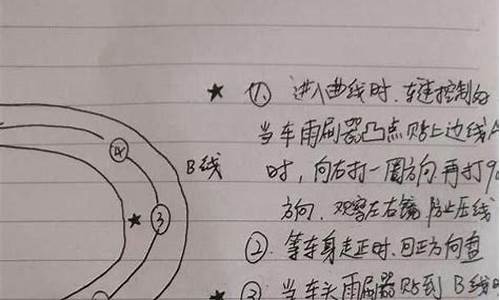 ★ ①、进入曲线时、车速控制好
当车雨刷器凸点贴上边线A
时，向右打一圈方向再打9
方向、观察左右镜防止压线
②、等车身走正时、回正方向盘
③ 当车头雨刷器贴到B线时
④
B线
★ ③